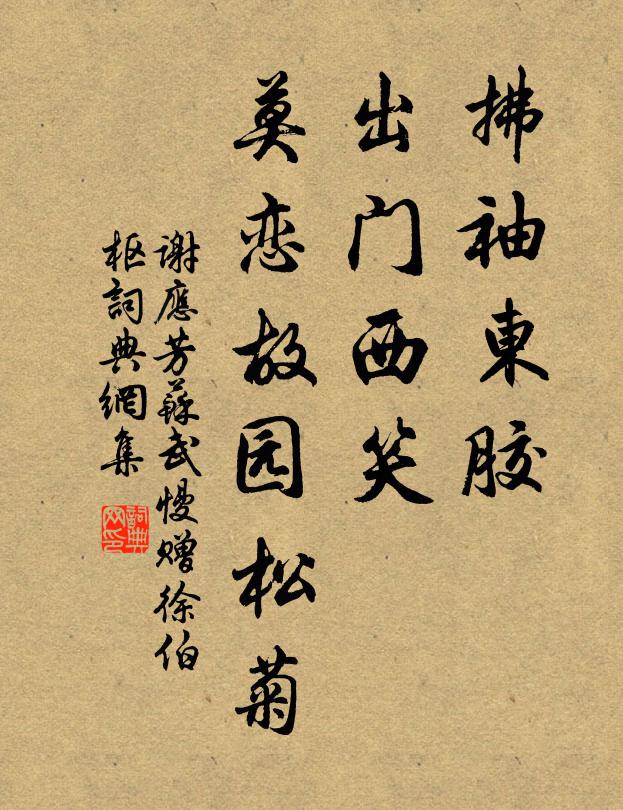 拂袖東胶
出门西笑
莫恋故园松菊
谢應芳蘇武慢赠徐伯
枢詞典網集
詞典网印